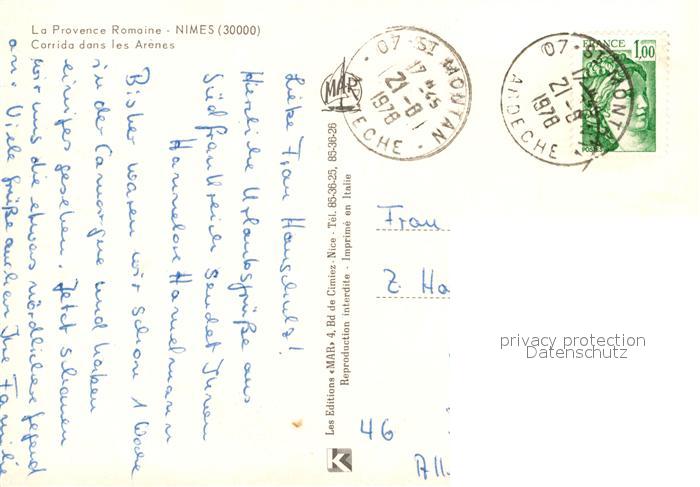 La Provence Romaine - NIMES (30000)
Corrida dans les Arènes
Liebe Frau
Herzliche Urlaubsgrüße aus
Südfrankreich sendet Ihnen
Hannelore Hanselmann
Bisher waren wir schon 1 Woche
in der Camargue und haben
einiges gesehen. Jetzt schauen
wir uns die etwas nördlichere Gegend
an. Viele Grüße auch an Ihre Familie
MAR
Les Editions «MAR» 4, Bd de Cimiez - Nice - Tél. 85-36-25, 85-36-26
Reproduction interdite - Imprimé en Italie
K
07 - ST MONTAN
17 H 45
21 - 8
1978
ARDECHE
07 - ST MONTAN
17 H 45
21 - 8
1978
ARDECHE
FRANCE
1,00
POSTES
Frau
Z. Ha
46
All.
privacy protection
Datenschutz